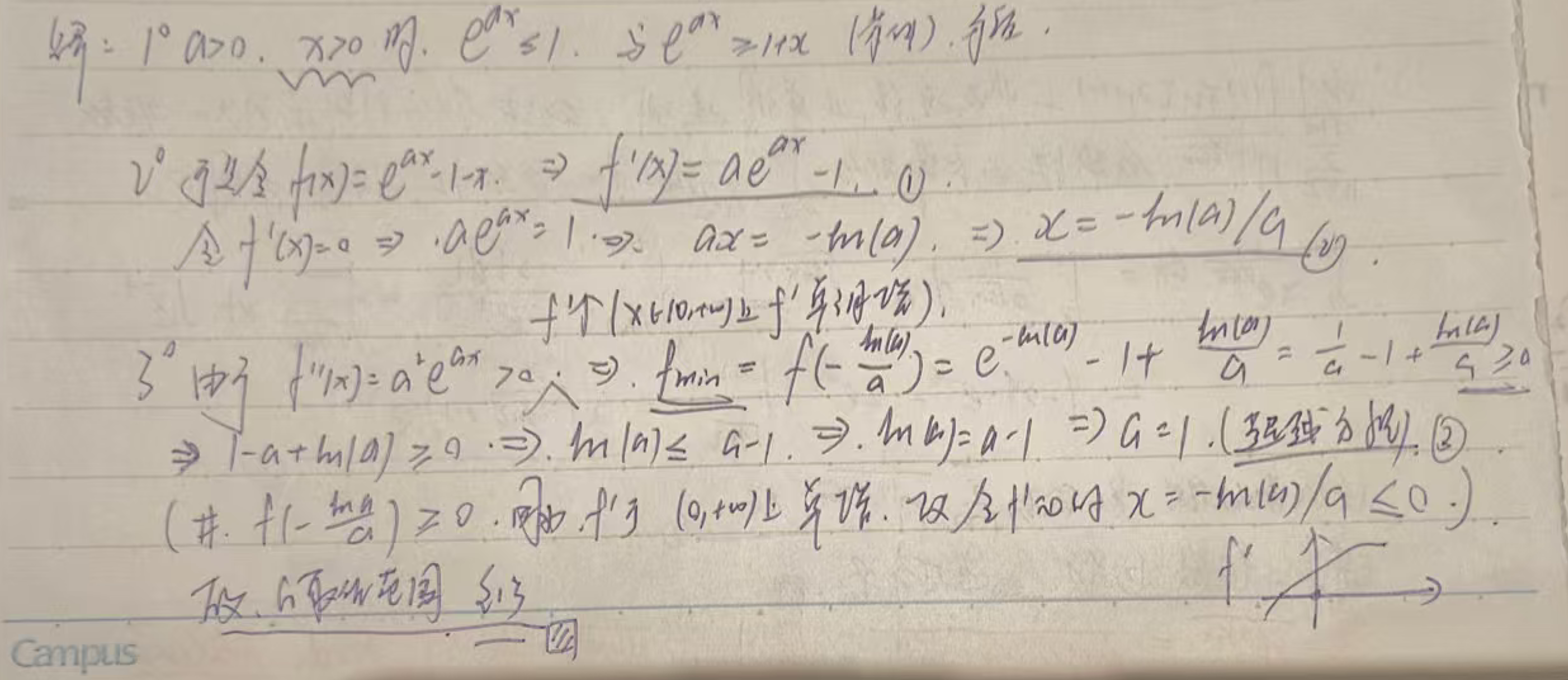 解: 1° a>0. x>0 时. e^{ax} ≤ 1. 与 e^{ax} ≥ 1+x
2° 于是令 f(x) = e^{ax} - 1 - x. ⇒ f'(x) = ae^{ax} - 1. ... ①.
令 f'(x)=0 ⇒ ae^{ax} = 1 ⇒ ax = -ln(a). ⇒ x = -ln(a)/a ②.
f'↑ (x∈(0,+∞)上 f' 单调递增).
3° 由于 f''(x) = a²e^{ax} > 0. ⇒ f_min = f(-ln(a)/a) = e^{-ln(a)} - 1 + ln(a)/a = 1/a - 1 + ln(a)/a ≥ 0
⇒ 1-a+ln(a) ≥ 0 ⇒ ln(a) ≤ a-1. ⇒ ln(a) = a-1 ⇒ a=1. (超越方程). ②.
(#. f(-ln a/a) ≥ 0. f' 于 (0,+∞)上 单增. 故 令 f'=0 时 x = -ln(a)/a ≤ 0.)
f'
故. a取值范围 {1}
Campus